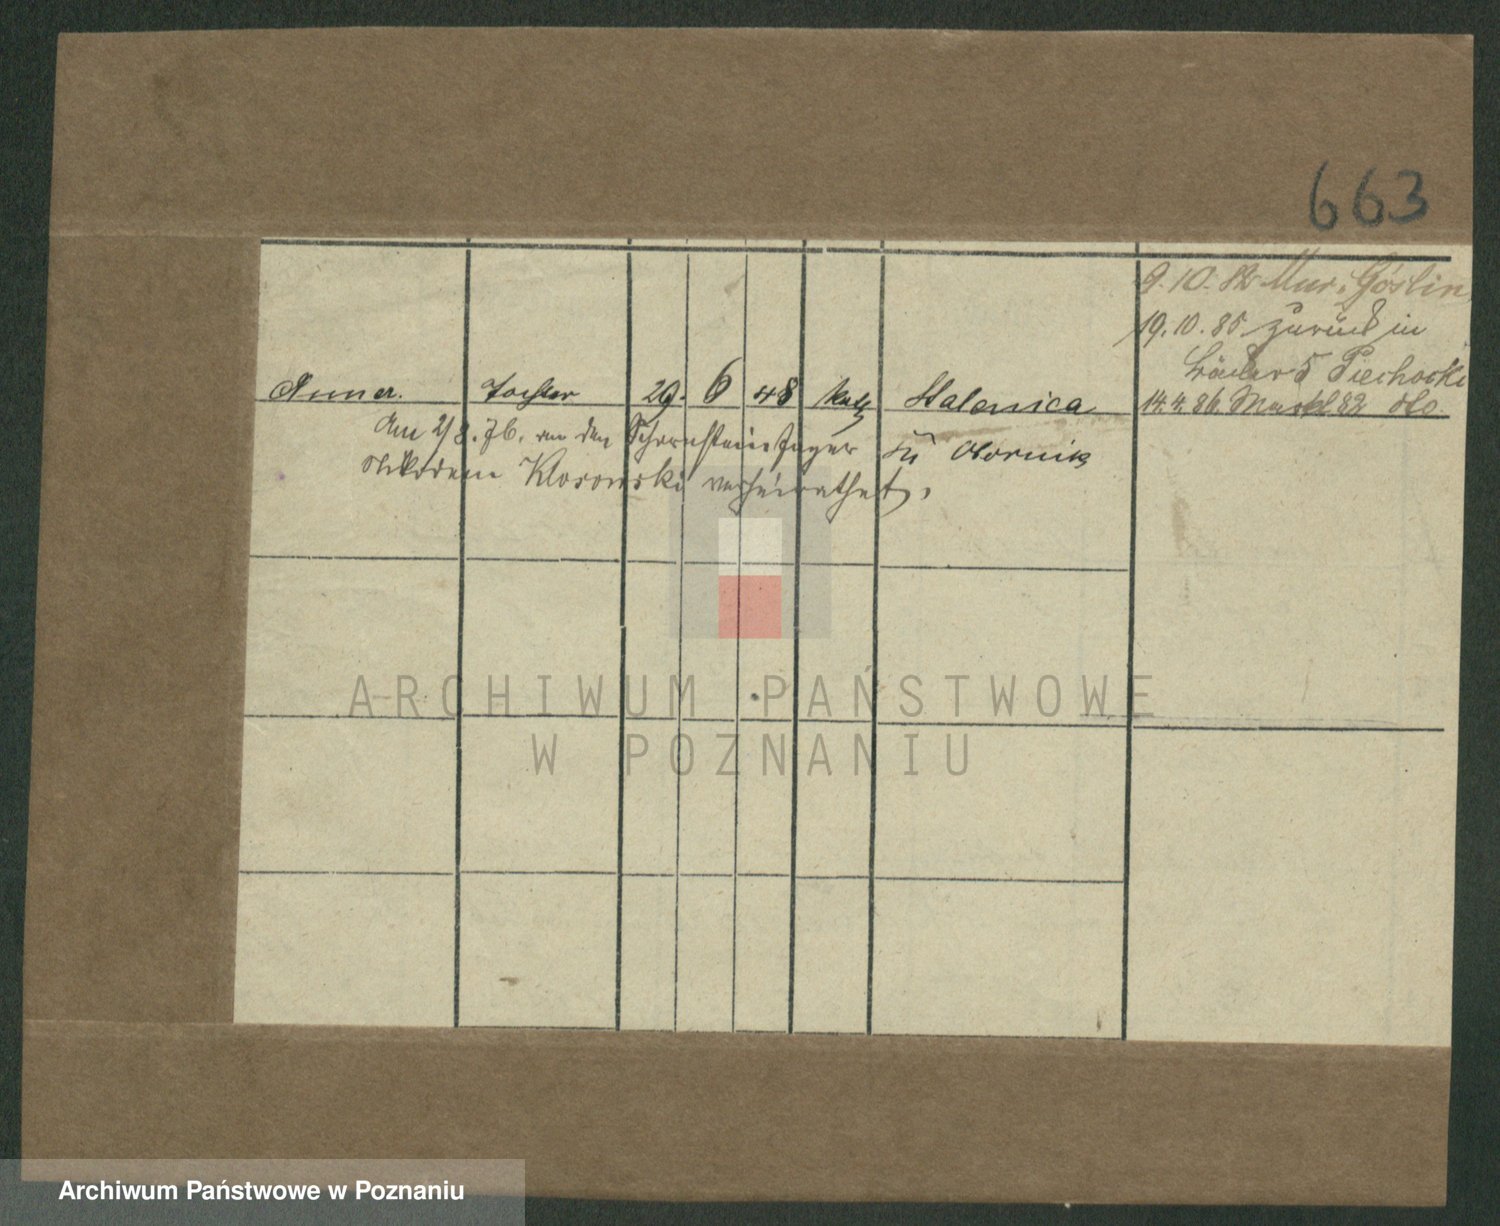 663
9.10.85 Mur. Goslin
19.10.85 zurück in
5 Piechocki
Anna. Tochter 29. 6 48 kath Stalenica 14.4.86. Markt 82 Ob.
Am 2/8. 76. an den Schornsteinfeger zu Obornik
Nikodem Klosowski verheirathet.
ARCHIWUM PAŃSTWOWE
W POZNANIU
Archiwum Państwowe w Poznaniu